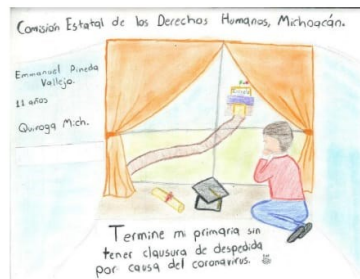 Comisión Estatal de los Derechos Humanos, Michoacán.
Emmanuel Pineda
Vallejo.
11 años
Quiroga Mich.
Termine mi primaria sin
tener clausura de despedida
por causa del coronavirus.